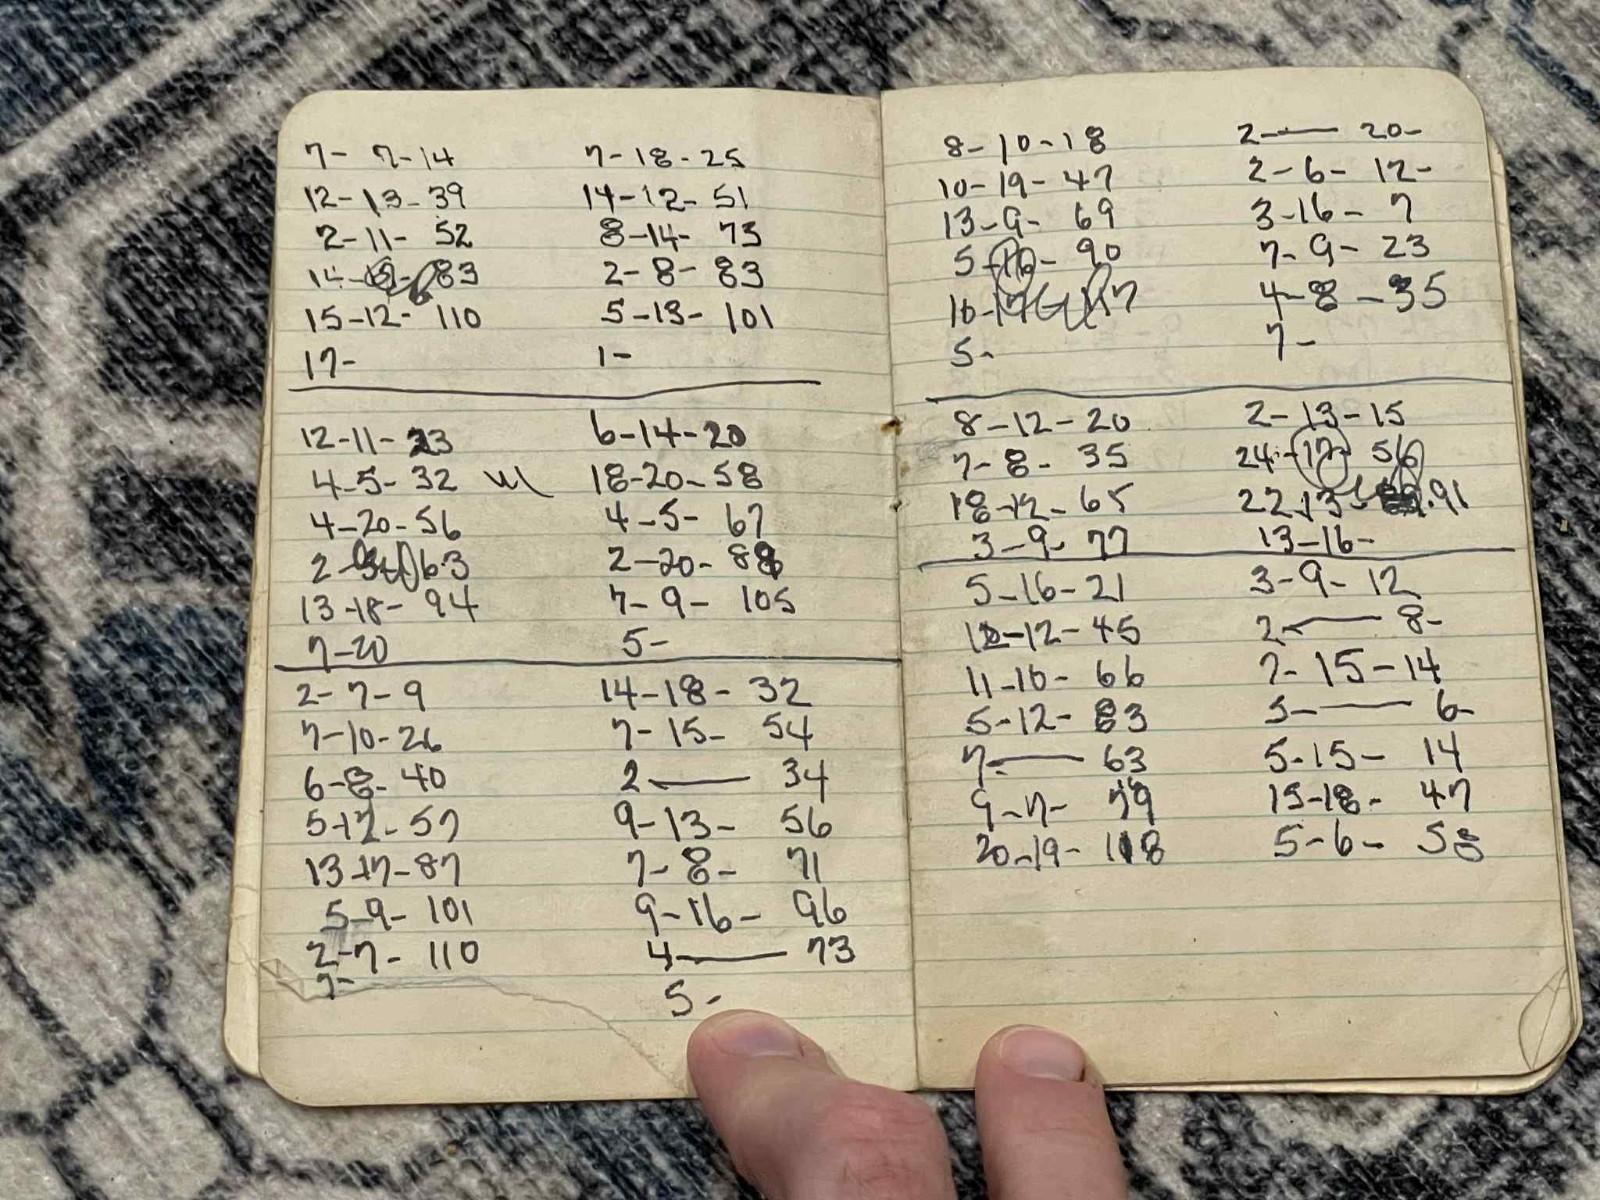 7- 7-14 7-18-25
12-13-39 14-12-51
2-11-52 8-14-73
14- 83 2-8-83
15-12-110 5-13-101
17- 1-
12-11-23 6-14-20
4-5-32 18-20-58
4-20-56 4-5-67
2- 63 2-20-
13-18-94 7-9-105
7-20 5-
2-7-9 14-18-32
7-10-26 7-15-54
6-8-40 2— 34
5-12-57 9-13-56
13-17-87 7-8-71
5-9-101 9-16-96
2-7-110 4— 73
7- 5-
8-10-18 2— 20-
10-19-47 2-6-12-
13-9-69 3-16-7
5- -90 7-9-23
10- 4-8-35
5- 7-
8-12-20 2-13-15
7-8-35 24-17-56
18-12-65 22-13- 91
3-9-77 13-16-
5-16-21 3-9-12
12-12-45 2— 8-
11-10-66 7-15-14
5-12-83 5— 6-
7— 63 5-15-14
9-7-79 15-18-47
20-19-118 5-6-58